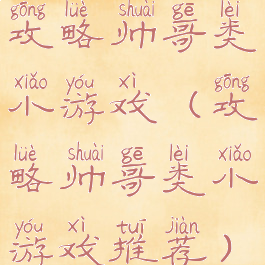 gōng lüè shuài gē lèi
攻略帅哥类
xiǎo yóu xì gōng
小游戏（攻
lüè shuài gē lèi xiǎo
略帅哥类小
yóu xì tuī jiàn
游戏推荐）